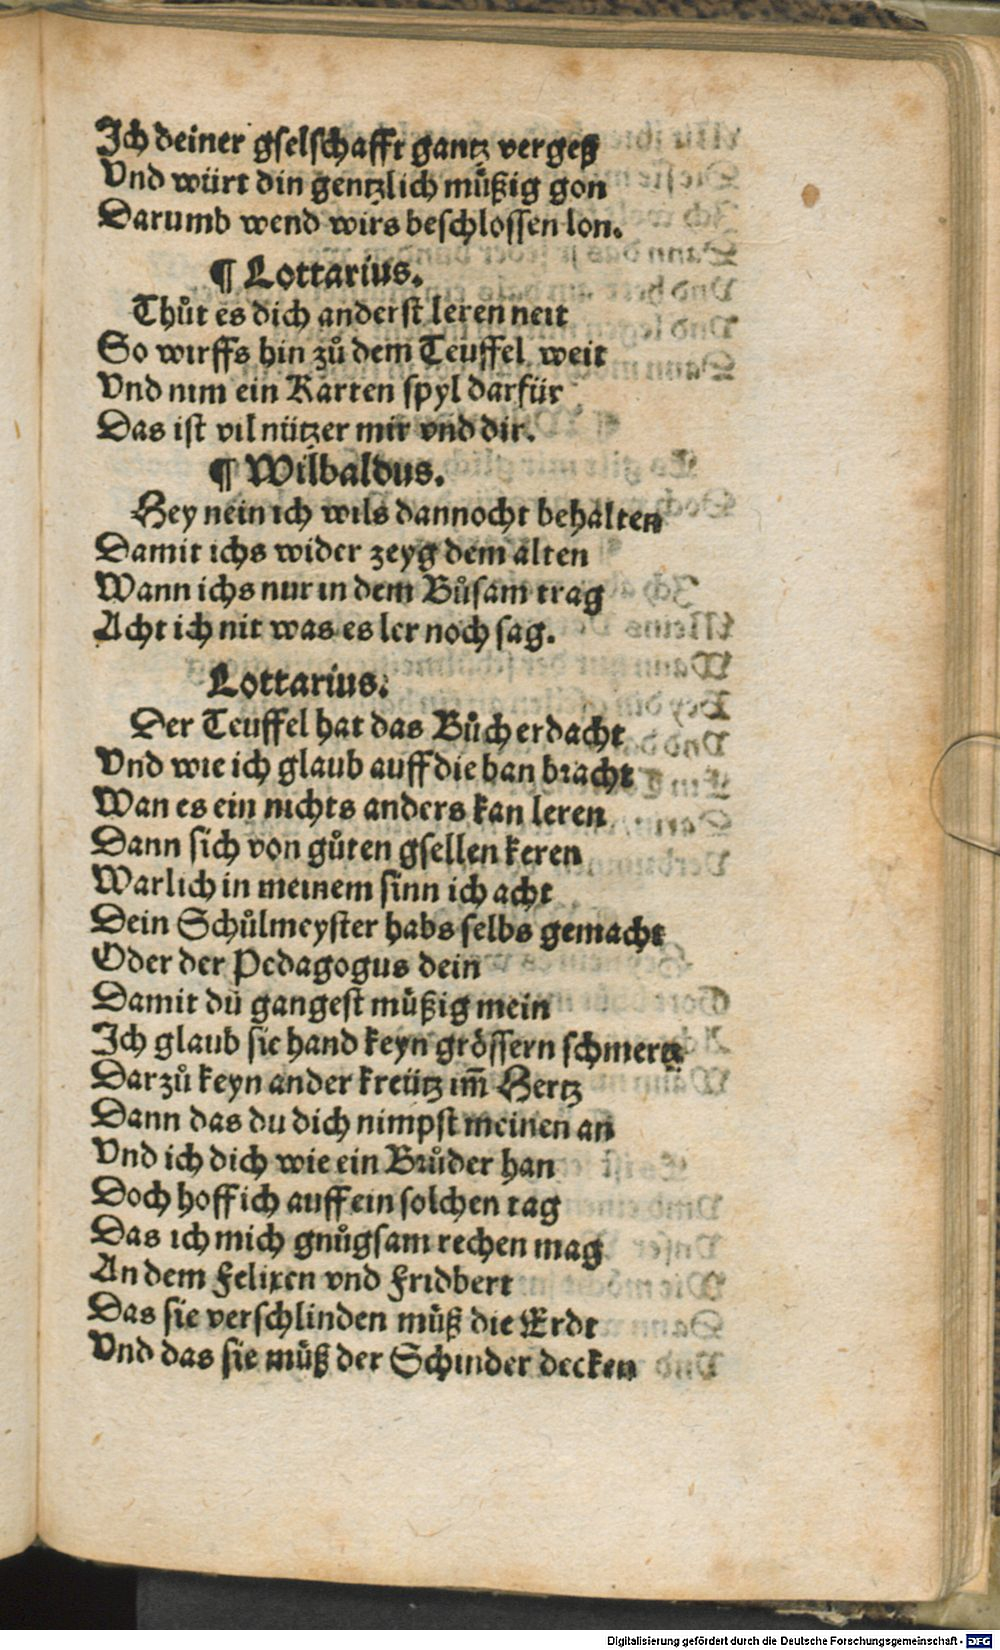 Ich deiner gselschafft gantz vergeß
Vnd würt din gentzlich müßig gon
Darumb wend wirs beschlossen lon.
¶ Lottarius.
Thůt es dich anderst leren neit
So wirffs hin zů dem Teuffel weit
Vnd nim ein Karten spyl darfür
Das ist vil nützer mir vnd dir.
¶ Wilbaldus.
Hey nein ich wils dannocht behalten
Damit ichs wider zeyg dem alten
Wann ichs nur in dem Bůsam trag
Acht ich nit was es ler noch sag.
Lottarius.
Der Teuffel hat das Bůch erdacht
Vnd wie ich glaub auff die ban bracht
Wan es ein nichts anders kan leren
Dann sich von gůten gsellen keren
Warlich in meinem sinn ich acht
Dein Schůlmeyster habs selbs gemacht
Oder der Pedagogus dein
Damit dü gangest müßig mein
Ich glaub sie hand keyn grössern schmertz
Darzů keyn ander kreütz im̄ Hertz
Dann das du dich nimpst meinen an
Vnd ich dich wie ein Brůder han
Doch hoff ich auff ein solchen tag
Das ich mich gnůgsam rechen mag
An dem Felixen vnd Fridbert
Das sie verschlinden müß die Erdt
Vnd das sie müß der Schinder decken
Digitalisierung gefördert durch die Deutsche Forschungsgemeinschaft - DFG